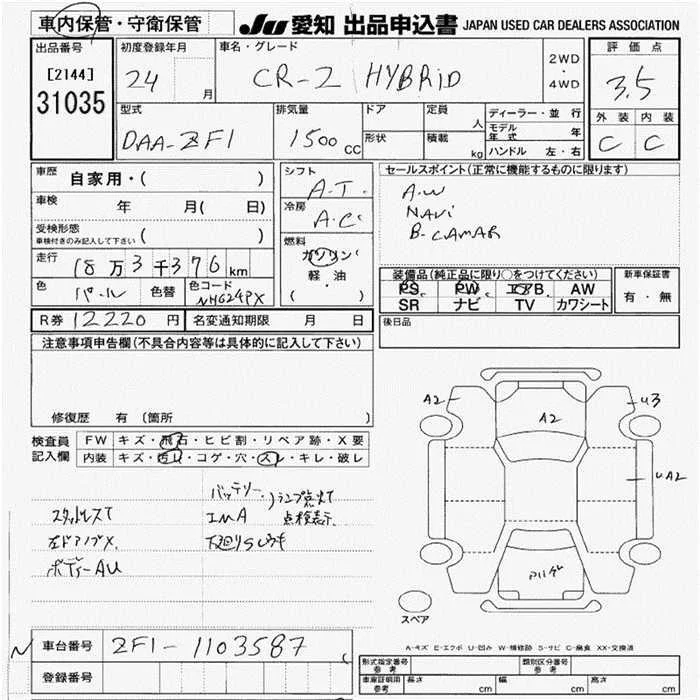 車内保管・守衛保管
JU 愛知 出品申込書 JAPAN USED CAR DEALERS ASSOCIATION
出品番号
[2144]
31035
初度登録年月
24 月
車名・グレード
CR-Z HYBRiD
2WD
・
4WD
評価点
3.5
外装 内装
C C
型式
DAA-ZF1
排気量
1500 CC
ドア
形状
定員 人
積載 kg
ディーラー・並行
モデル年式 年
ハンドル 左・右
車歴 自家用・( )
車検 年 月( 日)
受検形態
車検付きのみ記入して下さい ( )
走行 18万3千376km
色 パール 色替
色コード
NH624PX
シフト
A.T.
冷房
A.C
燃料
ガソリン
軽油
( )
セールスポイント(正常に機能するものに限ります)
A.W
NAVi
B-CAMAR
装備品(純正品に限り○をつけてください)
PS PW エアB AW
SR ナビ TV カワシート
新車保証書
有・無
R券 12220 円 名変通知期限 月 日
後日品
注意事項申告欄(不具合内容等は具体的に記入して下さい)
修復歴 有 〔箇所 〕
検査員記入欄
FW キズ・飛石・ヒビ割・リペア跡・X要
内装 キズ・汚れ・コゲ・穴・スレ・キレ・破レ
バッテリー・
IMA
ランプ点灯
点検表示
スタッドレスT
左ドアノブX
下廻りS
ボディーAU
A2
U3
A2
UA2
スペア
A-キズ E-エクボ U-凹み W-補修跡 S-サビ C-腐食 XX-交換済
N
車台番号 ZF1-1103587
登録番号
形式指定番号
参考
類別区分番号
参考
車庫証明用
参考
長さ cm 幅 cm 高さ cm